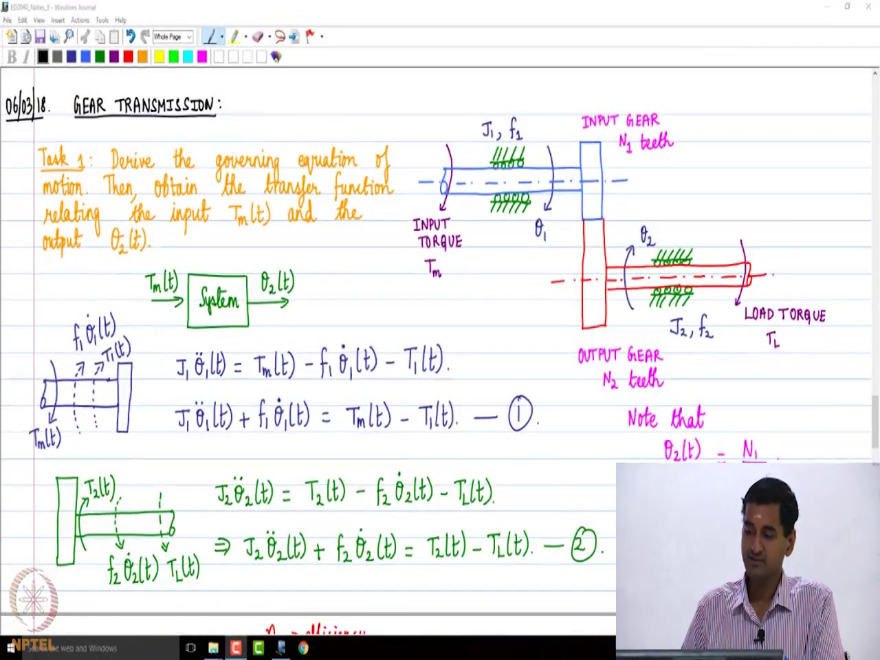 ED2040_Notes_5 - Windows Journal
File Edit View Insert Actions Tools Help
Whole Page
B I
06/03/18. GEAR TRANSMISSION:
Task 1: Derive the governing equation of
motion. Then, obtain the transfer function
relating the input Tm(t) and the
output θ2(t).
Tm(t) System θ2(t)
J1, f1
INPUT GEAR
N1 teeth
INPUT
TORQUE
Tm
θ1
θ2
J2, f2
LOAD TORQUE
TL
OUTPUT GEAR
N2 teeth
Note that
θ2(t) = N1
f1 θ̇1(t)
T1(t)
Tm(t)
J1 θ̈1(t) = Tm(t) - f1 θ̇1(t) - T1(t).
J1 θ̈1(t) + f1 θ̇1(t) = Tm(t) - T1(t). — ①
T2(t)
f2 θ̇2(t) TL(t)
J2 θ̈2(t) = T2(t) - f2 θ̇2(t) - TL(t).
⇒ J2 θ̈2(t) + f2 θ̇2(t) = T2(t) - TL(t). — ②
NPTEL
the web and Windows